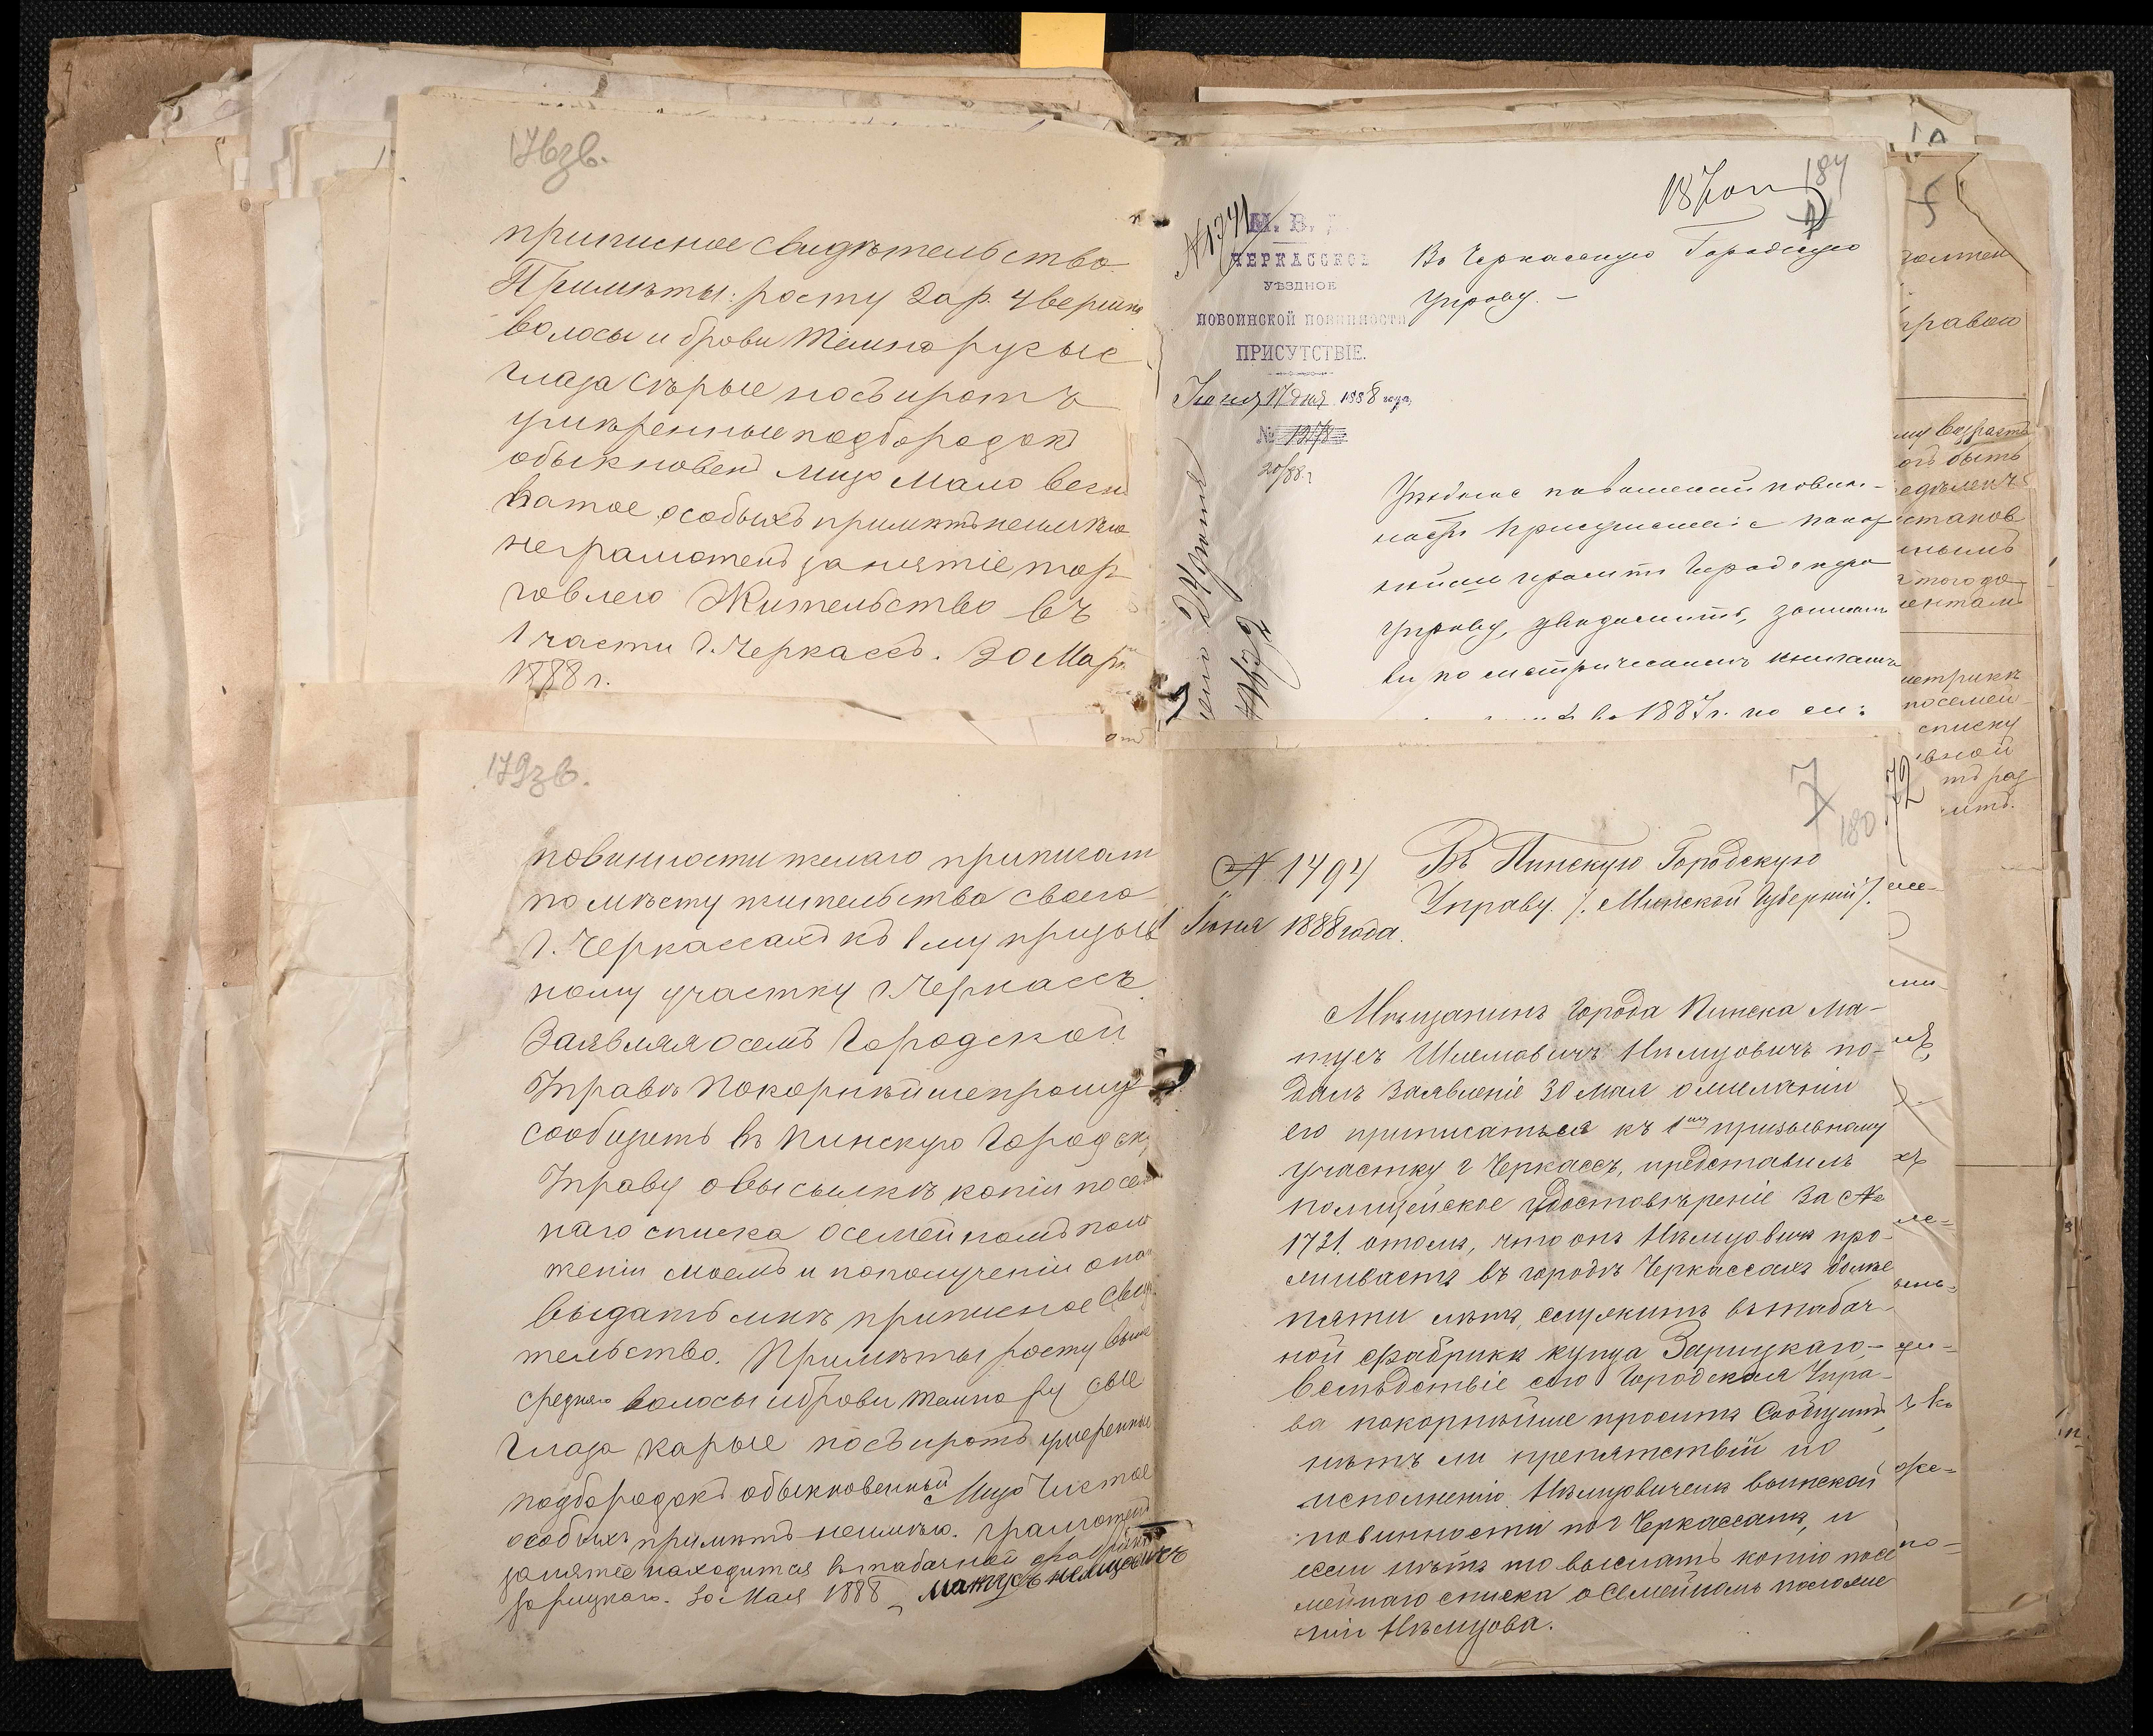 176зв.
приписное свидѣтельство.
Примѣты: росту 2 ар. 4 вершка
волосы и брови темнорусые
глаза сѣрые носъ и ротъ
умѣренные подбородокъ
обыкновенъ лицо мало весну
ватое особыхъ примѣтъ неимѣю
неграмотенъ занятіе тор
говлею Жительство въ
1 части г. Черкассъ. 30 Мар
1888 г.
184
№ 1741
М. В.
ЧЕРКАССКОЕ
УѢЗДНОЕ
ПОВОИНСКОЙ ПОВИННОСТИ
ПРИСУТСТВІЕ.
Іюня 17 дня 1888 года,
№ 1978
20/88 г
Въ Черкасскую Городскую
Управу. —
Уѣздное по воинской повин-
ности Присутствіе покор
нѣйше проситъ Городскую
Управу, увѣдомить, записанъ
ли по метрическимъ книгамъ
1887 г. по
179зв.
повинности желаю приписат
по мѣсту жительства своего
г. Черкассахъ къ 1му призыв
ному участку г. Черкассъ
Заявляя осемъ Городской
Управѣ покорнѣйше прошу
сообщить въ Пинскую Городск
Управу о высылкѣ копіи посем
наго списка о семейномъ поло
женіи моемъ и пополученіи оно
выдать мнѣ приписное свид
тельство. Примѣты росту выше
средняго волосы и брови темнору сые
глаза карые носъ и ротъ умеренные
подбородокъ обыкновенный Лицо Чистое
особыхъ примѣтъ неимѣю. грамотенъ
занятіе находится въ табачной фабрикѣ
Зарицкаго. 30 Мая 1888
7
180
№ 1494
Въ Пинскую Городскую
Управу. /. Минской Губерніи /.
1 Іюня 1888 года.
Мѣщанинъ города Пинска Ма-
тусъ Шлемовичъ Нѣмцовичъ по-
далъ заявленіе 30 Мая о желаніи
его приписаться къ 1му призывному
участку г Черкассъ, представилъ
полицейское удостовѣреніе за №
1731. отомъ, что онъ Нѣмцовичъ про-
живаетъ въ городѣ Черкассахъ болѣе
пяти лѣтъ, служитъ въ табач-
ной фабрикѣ купца Зарицкаго,—
Вслѣдствіе сего Городская Упра-
ва покорнѣйше проситъ Сообщить,
нѣтъ ли препятствій по
исполненію Нѣмцовичемъ воинской
повинности по г Черкассамъ, и
если нѣтъ то выслать копію посе
мейнаго списка о Семейномъ положе
ніи Нѣмцова.
72